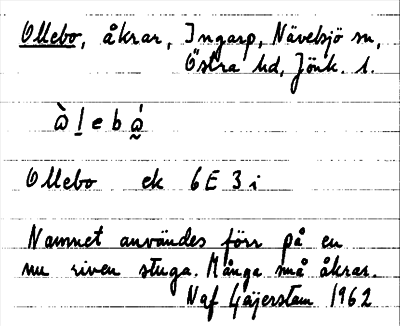 Ollebo, åkrar, Ingarp, Nävelsjö sn,
Östra hd, Jönk. l.
ò l e b ó
Ollebo ek 6E 3i
Namnet användes förr på en
nu riven stuga. Många små åkrar.
Naf Gäjerstam 1962